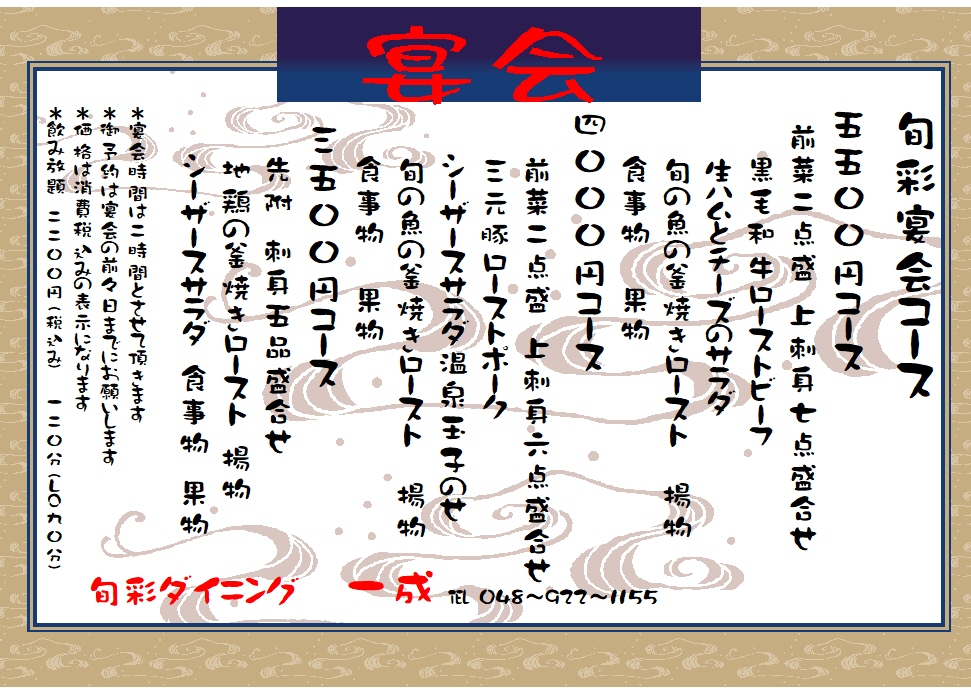 宴会
旬彩宴会コース
五五〇〇円コース
前菜二点盛 上刺身七点盛合せ
黒毛和牛ローストビーフ
生ハムとチーズのサラダ
旬の魚の釜焼きロースト 揚物
食事物 果物
四〇〇〇円コース
前菜二点盛 上刺身六点盛合せ
三元豚ローストポーク
シーザースサラダ温泉玉子のせ
旬の魚の釜焼きロースト 揚物
食事物 果物
三五〇〇円コース
先附 刺身五品盛合せ
地鶏の釜焼きロースト 揚物
シーザースサラダ 食事物 果物
＊宴会時間は二時間とさせて頂きます
＊御予約は宴会の前々日までにお願いします
＊価格は消費税込みの表示になります
＊飲み放題 二二〇〇円（税込み） 一二〇分（LO九〇分）
旬彩ダイニング 一成 TEL 048～922～1155